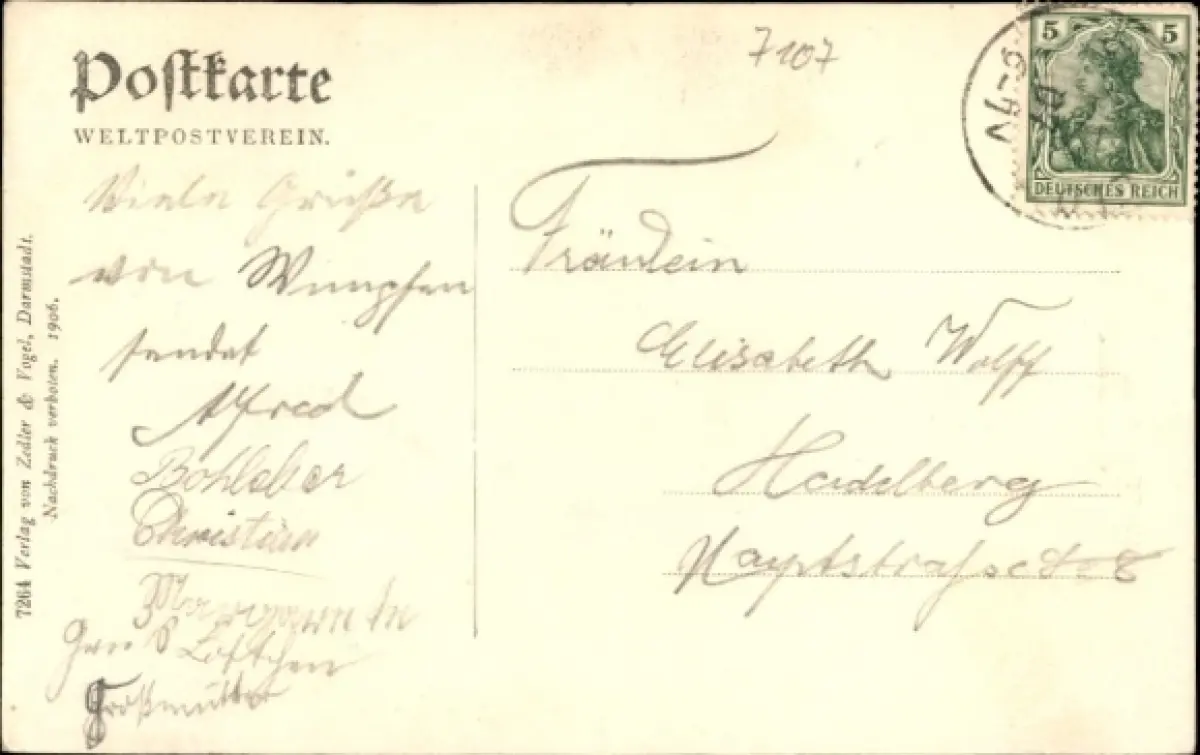 Postkarte
WELTPOSTVEREIN.
7107
5 5
DEUTSCHES REICH
Viele Grüße
von Wimpfen
sendet
Alfred
Bohleber
Christian
Großmutter
Fräulein
Elisabeth Wolff
Heidelberg
Hauptstraße
7264 Verlag von Zedler & Vogel, Darmstadt.
Nachdruck verboten. 1906.